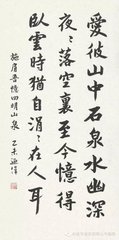 愛彼山中石泉水幽深
夜夜落空裏至今憶得
臥雲時猶自涓涓在人耳
施肩吾憶四明山泉